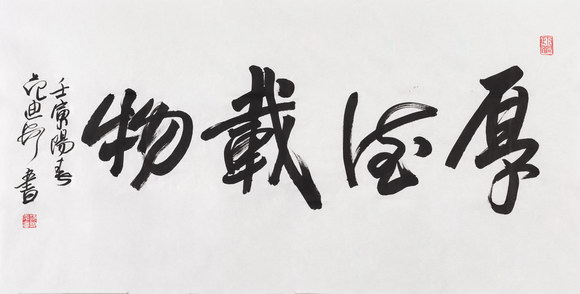 厚德載物
壬寅陽春
范迪 書